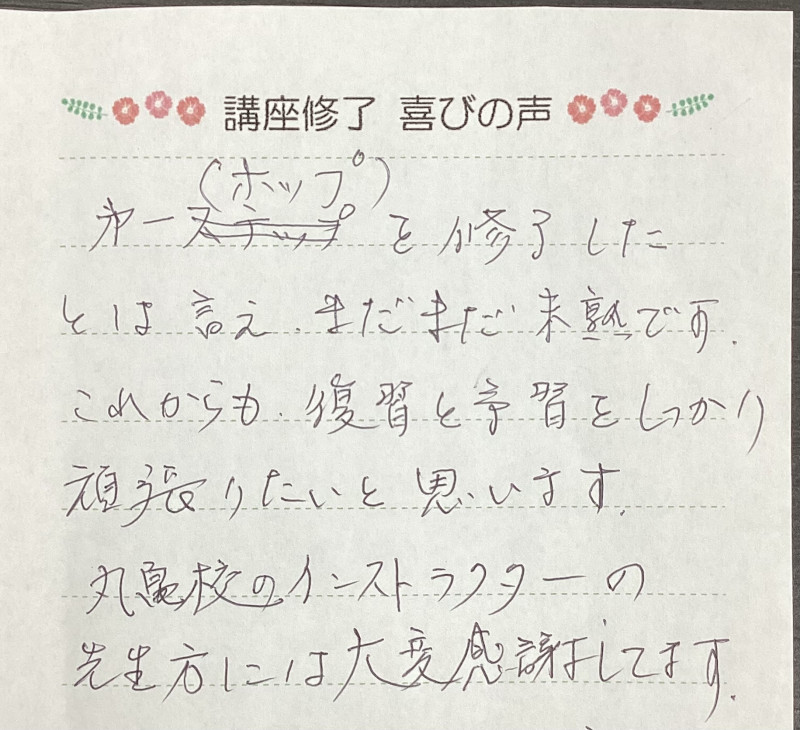 講座修了 喜びの声
(ホップ)
第一ステップを修了した
とは言え、まだまだ未熟です。
これからも、復習と予習をしっかり
頑張りたいと思います。
丸亀校のインストラクターの
先生方には大変感謝してます。